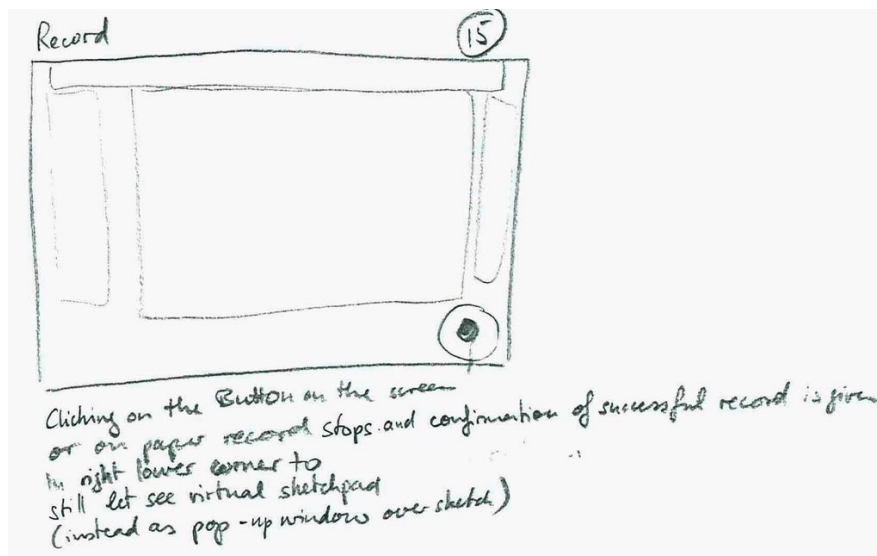 Record
15
Clicking on the Button on the screen
or on paper record stops and confirmation of successful record is given
in right lower corner to
still let see virtual sketchpad
(instead as pop-up window over sketch)